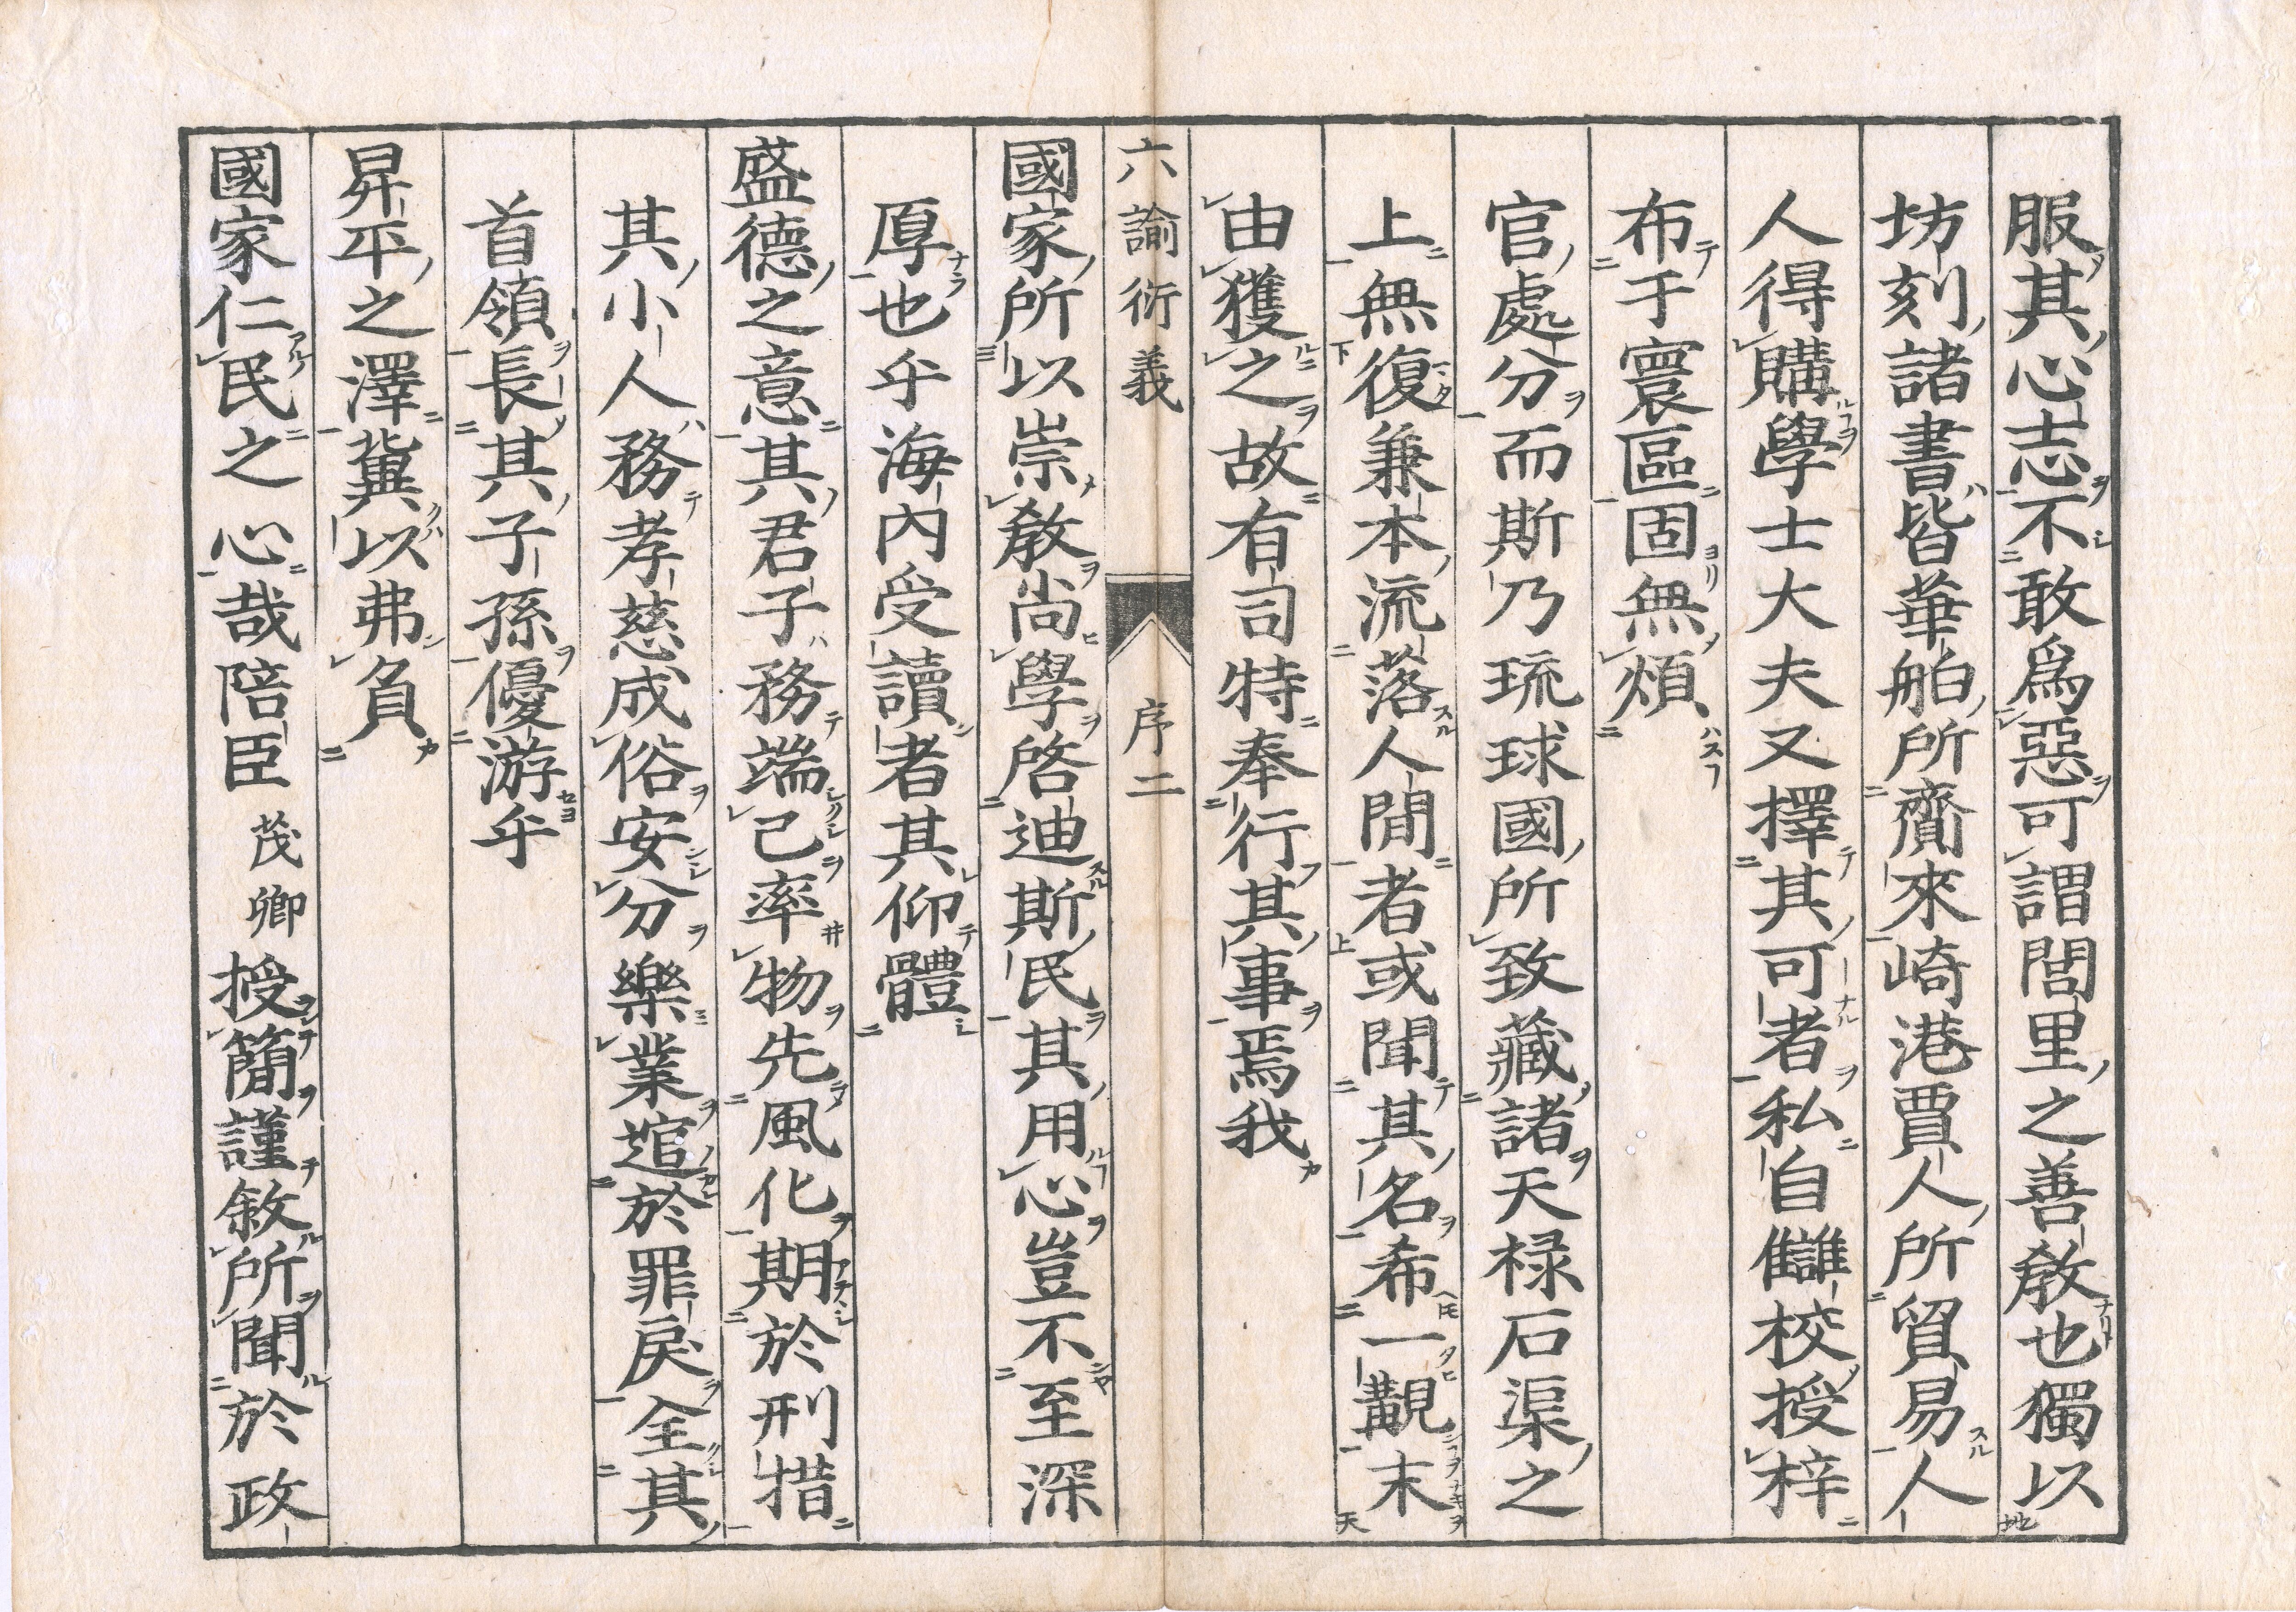 服其心志不敢爲惡可謂閭里之善敎也獨以
坊刻諸書皆華舶所齎來崎港賈人所貿易人
人得購學士大夫又擇其可者私自讎校授梓
布于寰區固無煩
官處分而斯乃琉球國所致藏諸天祿石渠之
上無復兼本流落人間者或聞其名希一覯末
由獲之故有司特奉行其事焉我
六諭衍義 序二
國家所以崇敎尚學啓迪斯民其用心豈不至深
厚也乎海內受讀者其仰體
盛德之意其君子務端己率物先風化期於刑措
其小人務孝慈成俗安分樂業逭於罪戾全其
首領長其子孫優游乎
昇平之澤冀以弗負
國家仁民之心哉陪臣茂卿授簡謹敘所聞於政